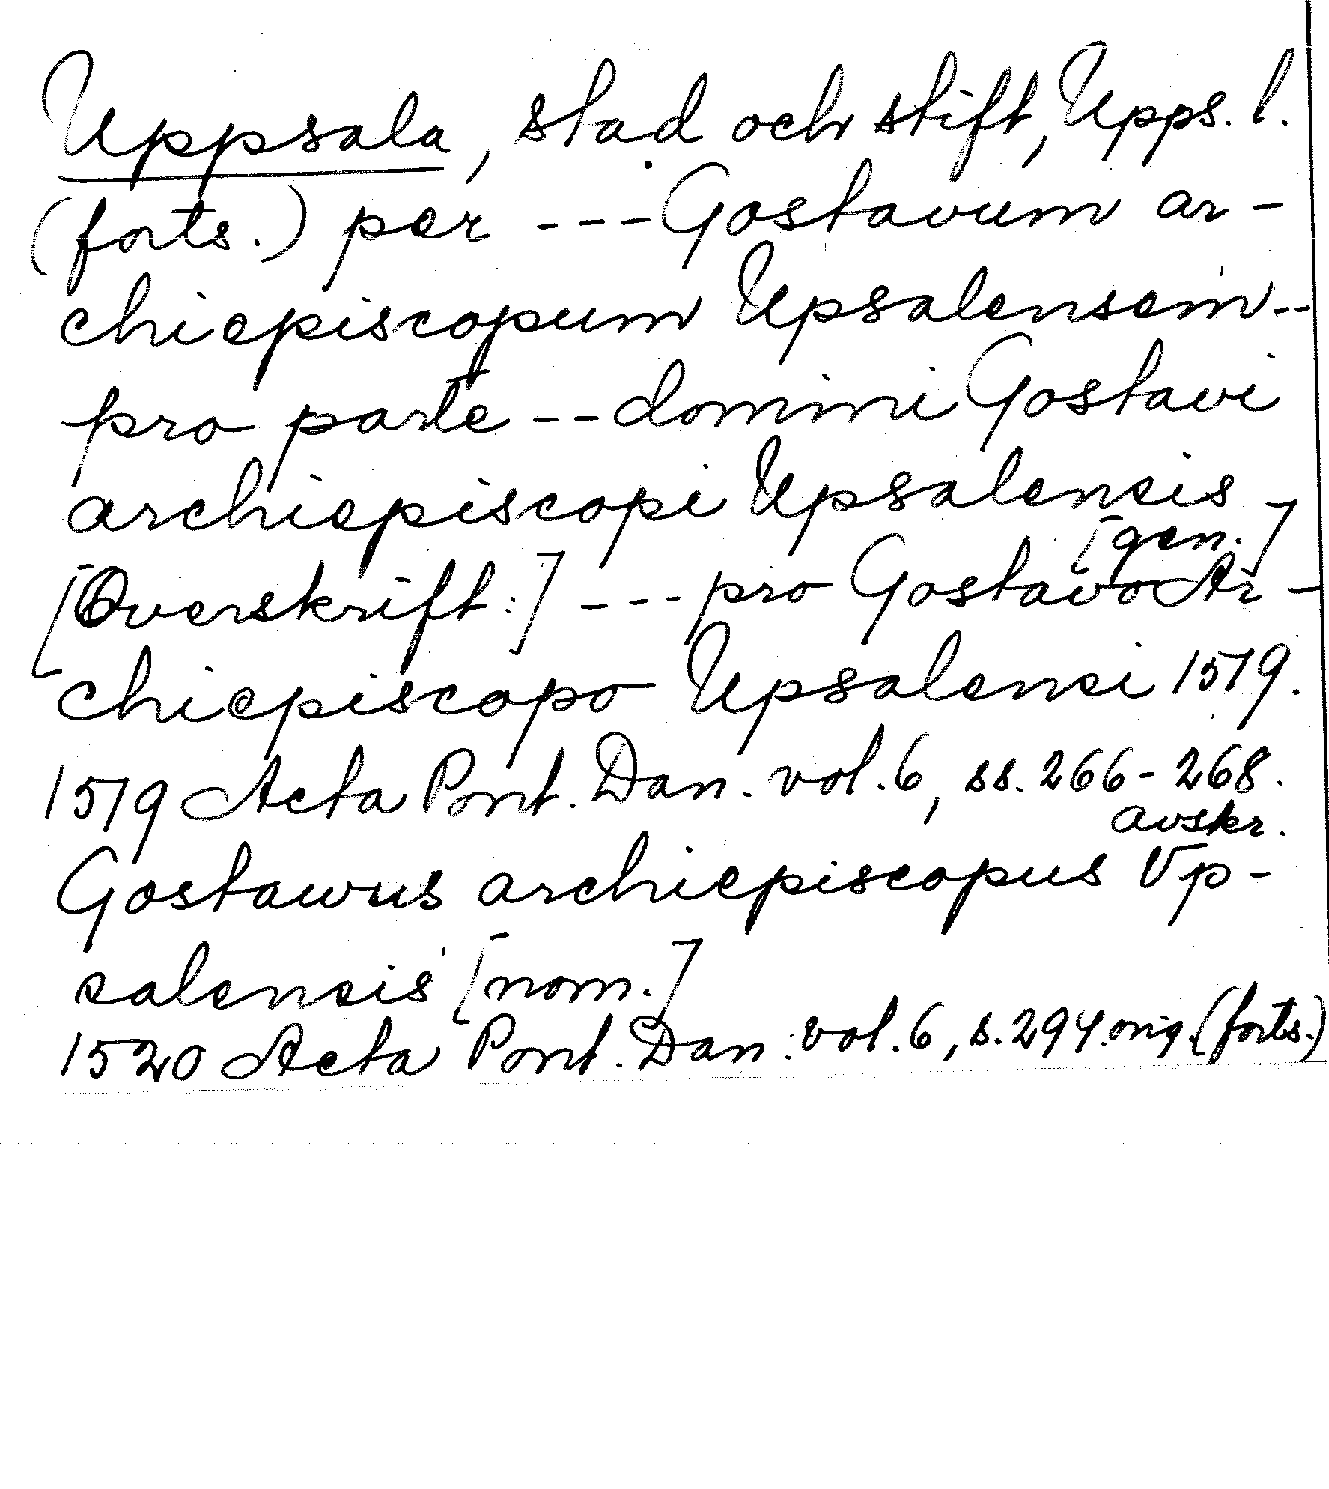 Uppsala, stad och stift, Upps. l.
(forts.) per --- Gostavum ar-
chiepiscopum Upsalensem --
pro parte -- domini Gostavi
archiepiscopi Upsalensis
[gen.]
[Överskrift:] --- pro Gostavo Ar-
chiepiscopo Upsalensi 1519.
1519 Acta Pont. Dan. vol. 6, ss. 266-268.
avskr.
Gostawus archiepiscopus Vp-
salensis [nom.]
1520 Acta Pont. Dan. vol. 6, s. 294. orig. (forts.)